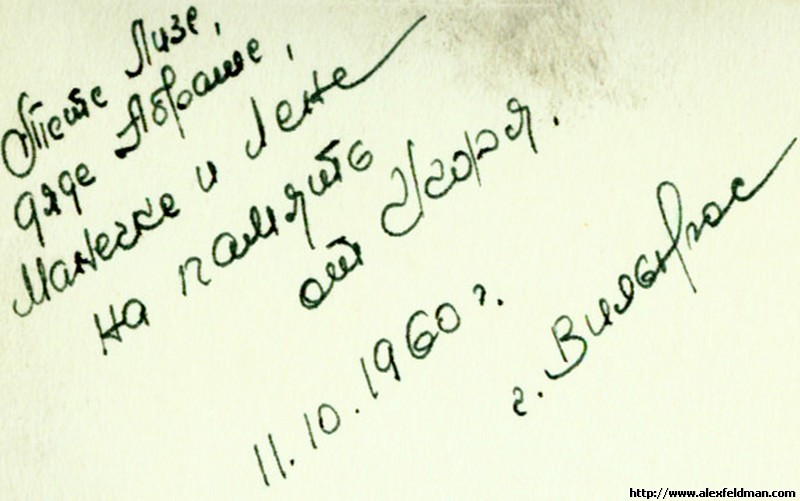 Тете Лизе,
дяде Абраше,
Манечке и Лене
на память
от Игоря.
11.10.1960 г.
г. Вильнюс
http://www.alexfeldman.com